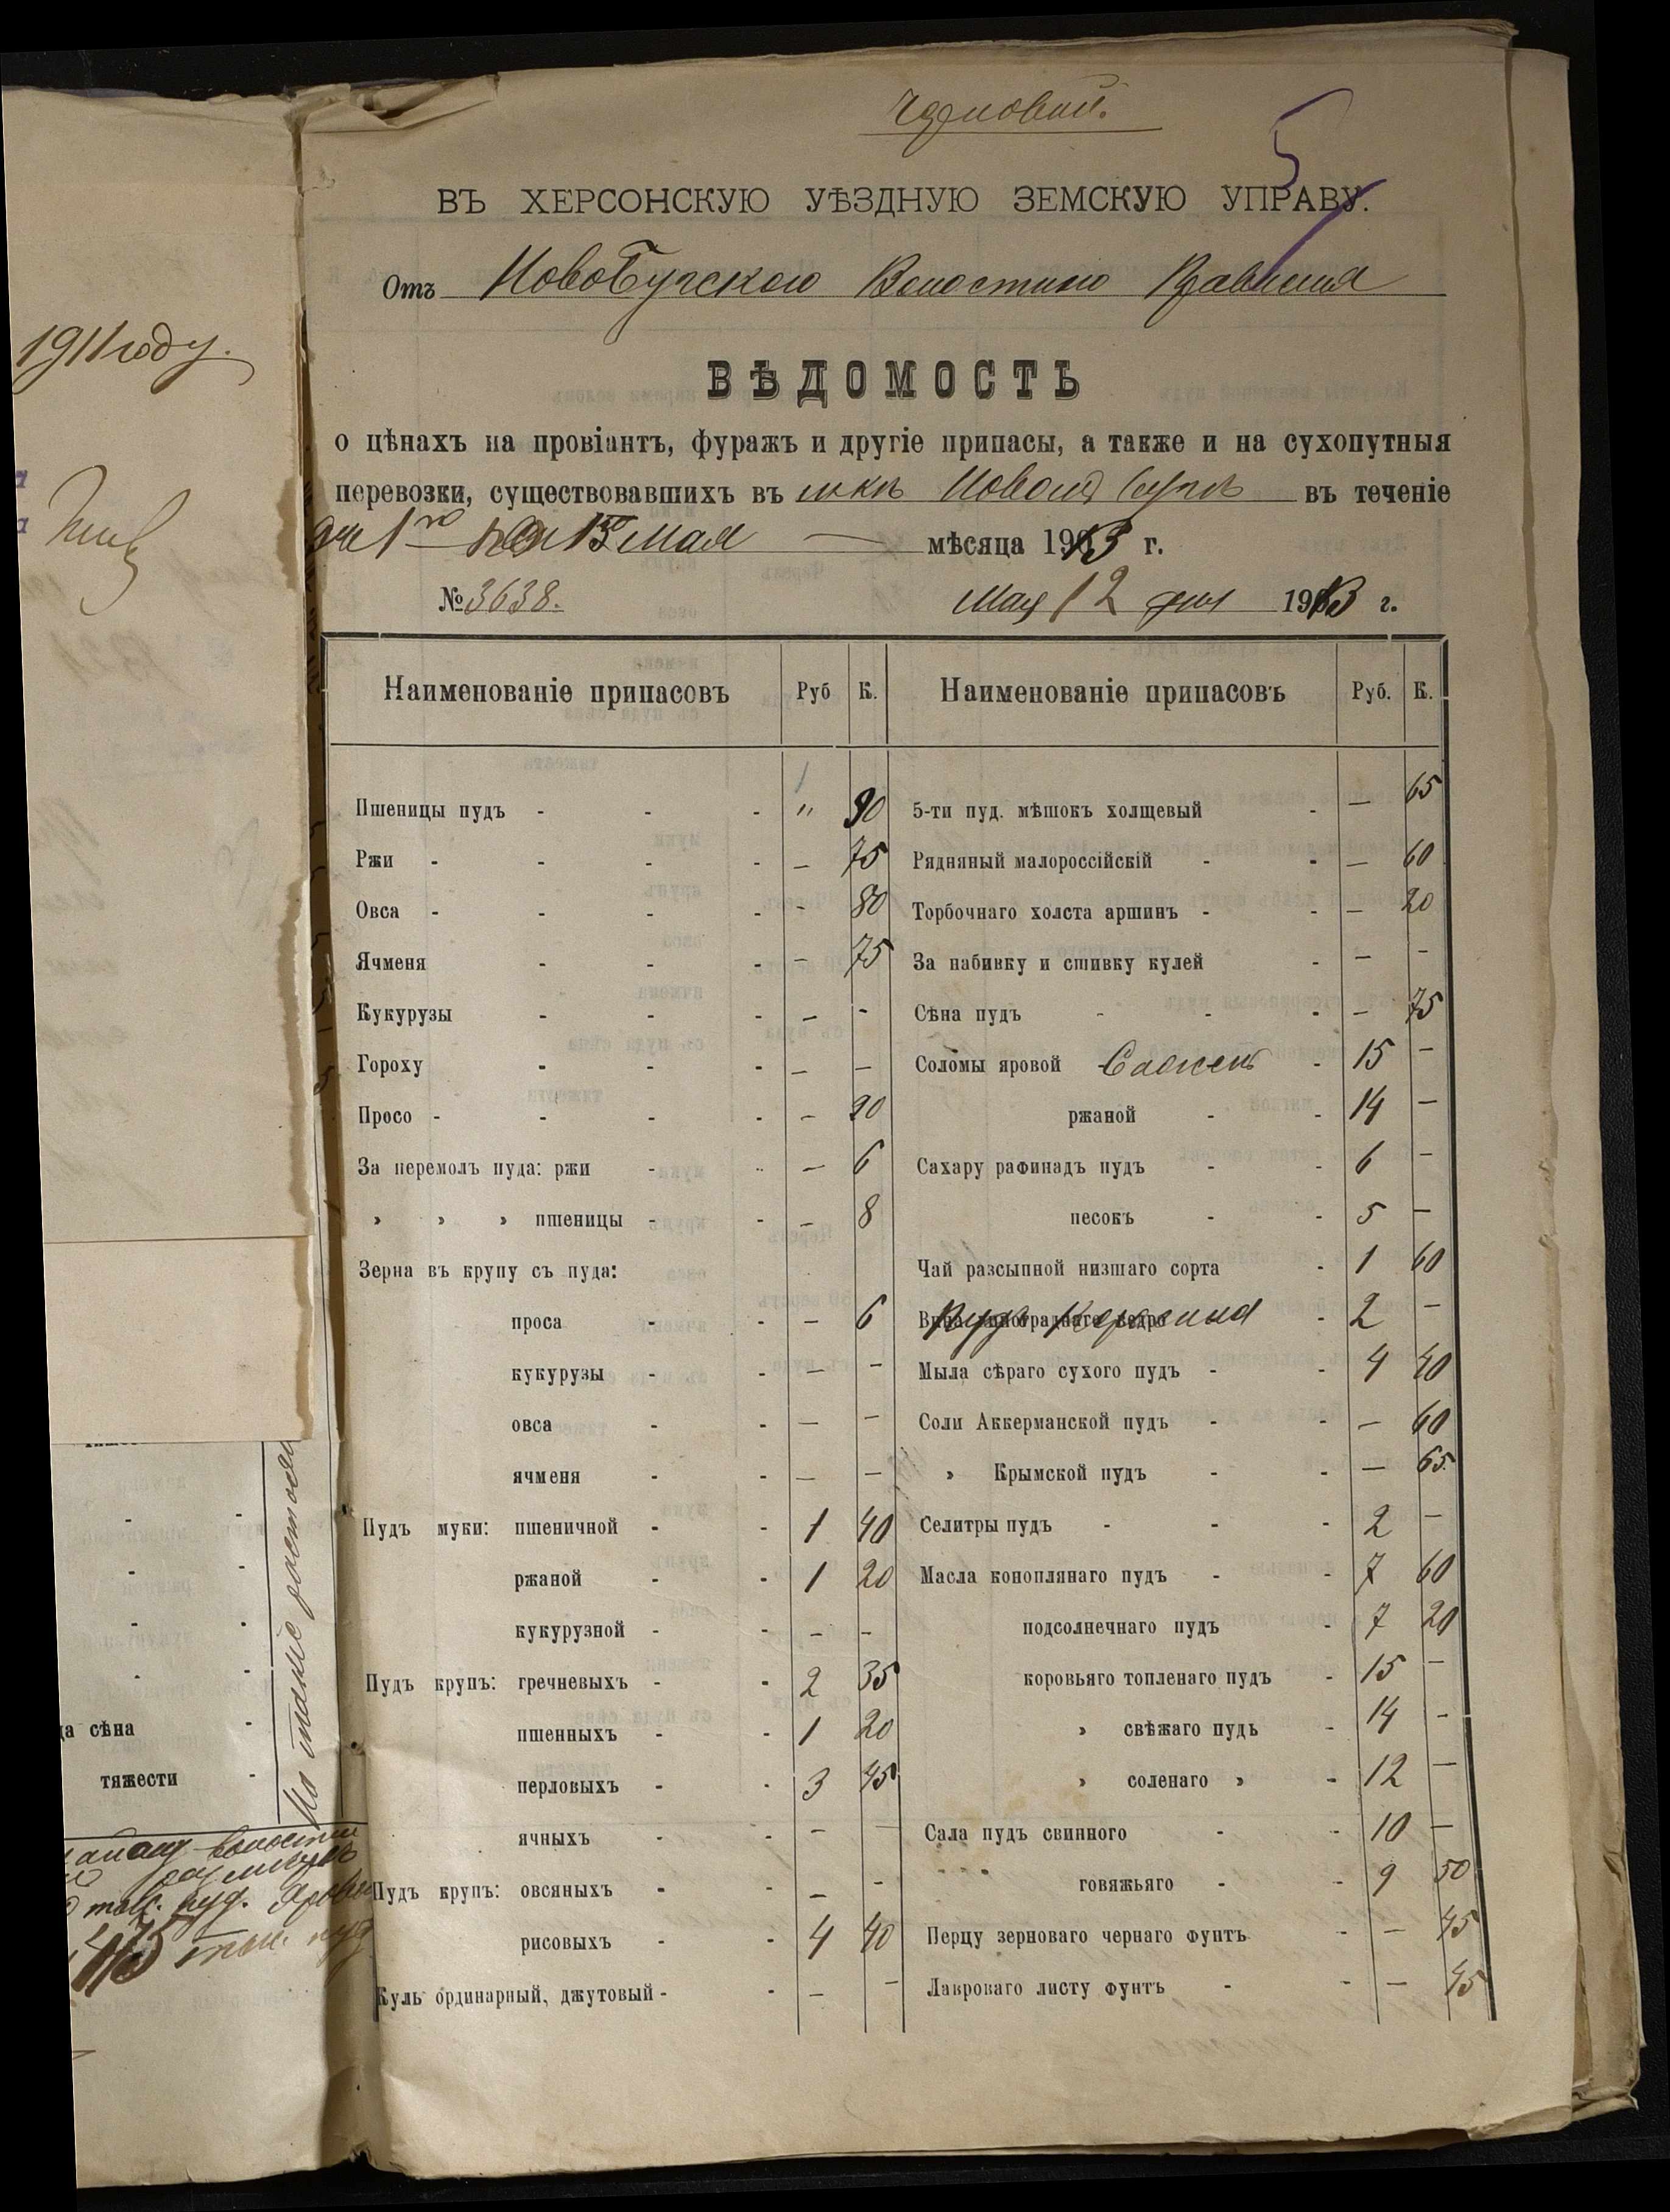 Черновой.
ВЪ ХЕРСОНСКУЮ УѢЗДНУЮ ЗЕМСКУЮ УПРАВУ.
Отъ НовоБугскаго Волостного Правленія
ВѢДОМОСТЬ
о цѣнахъ на провіантъ, фуражъ и другіе припасы, а также и на сухопутныя
перевозки, существовавшихъ въ м-кѣ Новомъ Бугѣ въ теченіе
1го 15 Мая — мѣсяца 1913 г.
№ 3638. Мая 12 дня 1913 г.
Наименованіе припасовъ Руб К. Наименованіе припасовъ Руб. К.
Пшеницы пудъ - - - „ 90 5-ти пуд. мѣшокъ холщевый - — 65
Ржи - - - - — 75 Рядняный малороссійскій - - — 60
Овса - - - - - 80 Торбочнаго холста аршинъ - - — 20
Ячменя - - - — 75 За набивку и сшивку кулей - — -
Кукурузы - - - — - Сѣна пудъ - - - — 75
Гороху - - - — — Соломы яровой Сажень - 15 —
Просо - - - - — 90 ржаной - - 14 —
За перемолъ пуда: ржи - - — 6 Сахару рафинадъ пудъ - - 6 —
» » » пшеницы - - — 8 песокъ - - 5 —
Зерна въ крупу съ пуда: Чай разсыпной низшаго сорта - 1 60
проса - - — 6 Пудъ Керосина - 2 —
кукурузы - - — - Мыла сѣраго сухого пудъ - - 4 40
овса - - — - Соли Аккерманской пудъ - - — 60
ячменя - - — — » Крымской пудъ - - — 65
Пудъ муки: пшеничной - - 1 40 Селитры пудъ - - - 2 —
ржаной - - 1 20 Масла коноплянаго пудъ - - 7 60
кукурузной - - — — подсолнечнаго пудъ - 7 20
Пудъ крупъ: гречневыхъ - - 2 35 коровьяго топленаго пудъ - 15 —
пшенныхъ - - 1 20 » свѣжаго пудъ - 14 -
перловыхъ - - 3 45 » соленаго » - 12 —
ячныхъ - - — — Сала пудъ свинного - - 10 —
Пудъ крупъ: овсяныхъ - - — - говяжьяго - - 9 50
рисовыхъ - - 4 40 Перцу зерноваго чернаго фунтъ - — 45
Куль ординарный, джутовый - - — - Лавроваго листу фунтъ - - — 45
1911 году.
да сѣна -
тяжести -